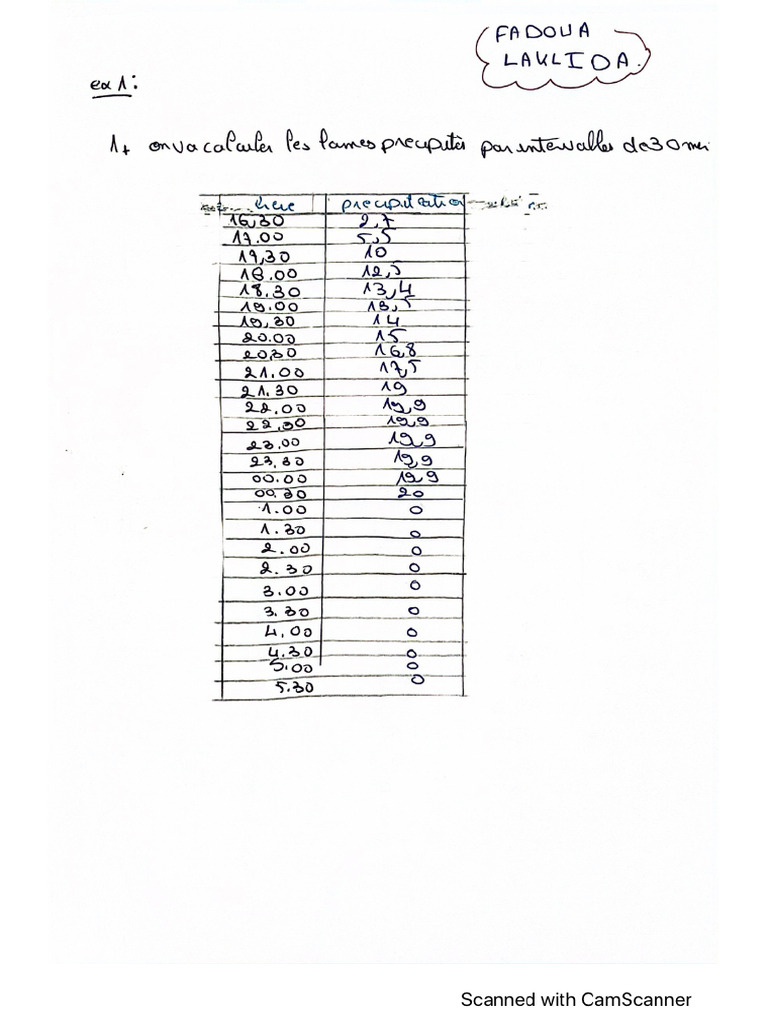 FADOUA
LAKLIDA.
ex 1:
1, on va calculer les lames precipités par intervalles de 30 min
precipitation
16,30 2,7
17.00 5,5
19,30 10
18.00 12,5
18.30 13,4
19.00 13,5
19,30 14
20.00 15
20,30 16,8
21.00 17,5
21.30 19
22.00 19,9
22,30 19,9
23,00 19,9
23,30 19,9
00.00 19,9
00.30 20
1.00 0
1.30 0
2.00 0
2.30 0
3.00 0
3.30 0
4,00 0
4.30 0
5.00 0
5.30 0
Scanned with CamScanner